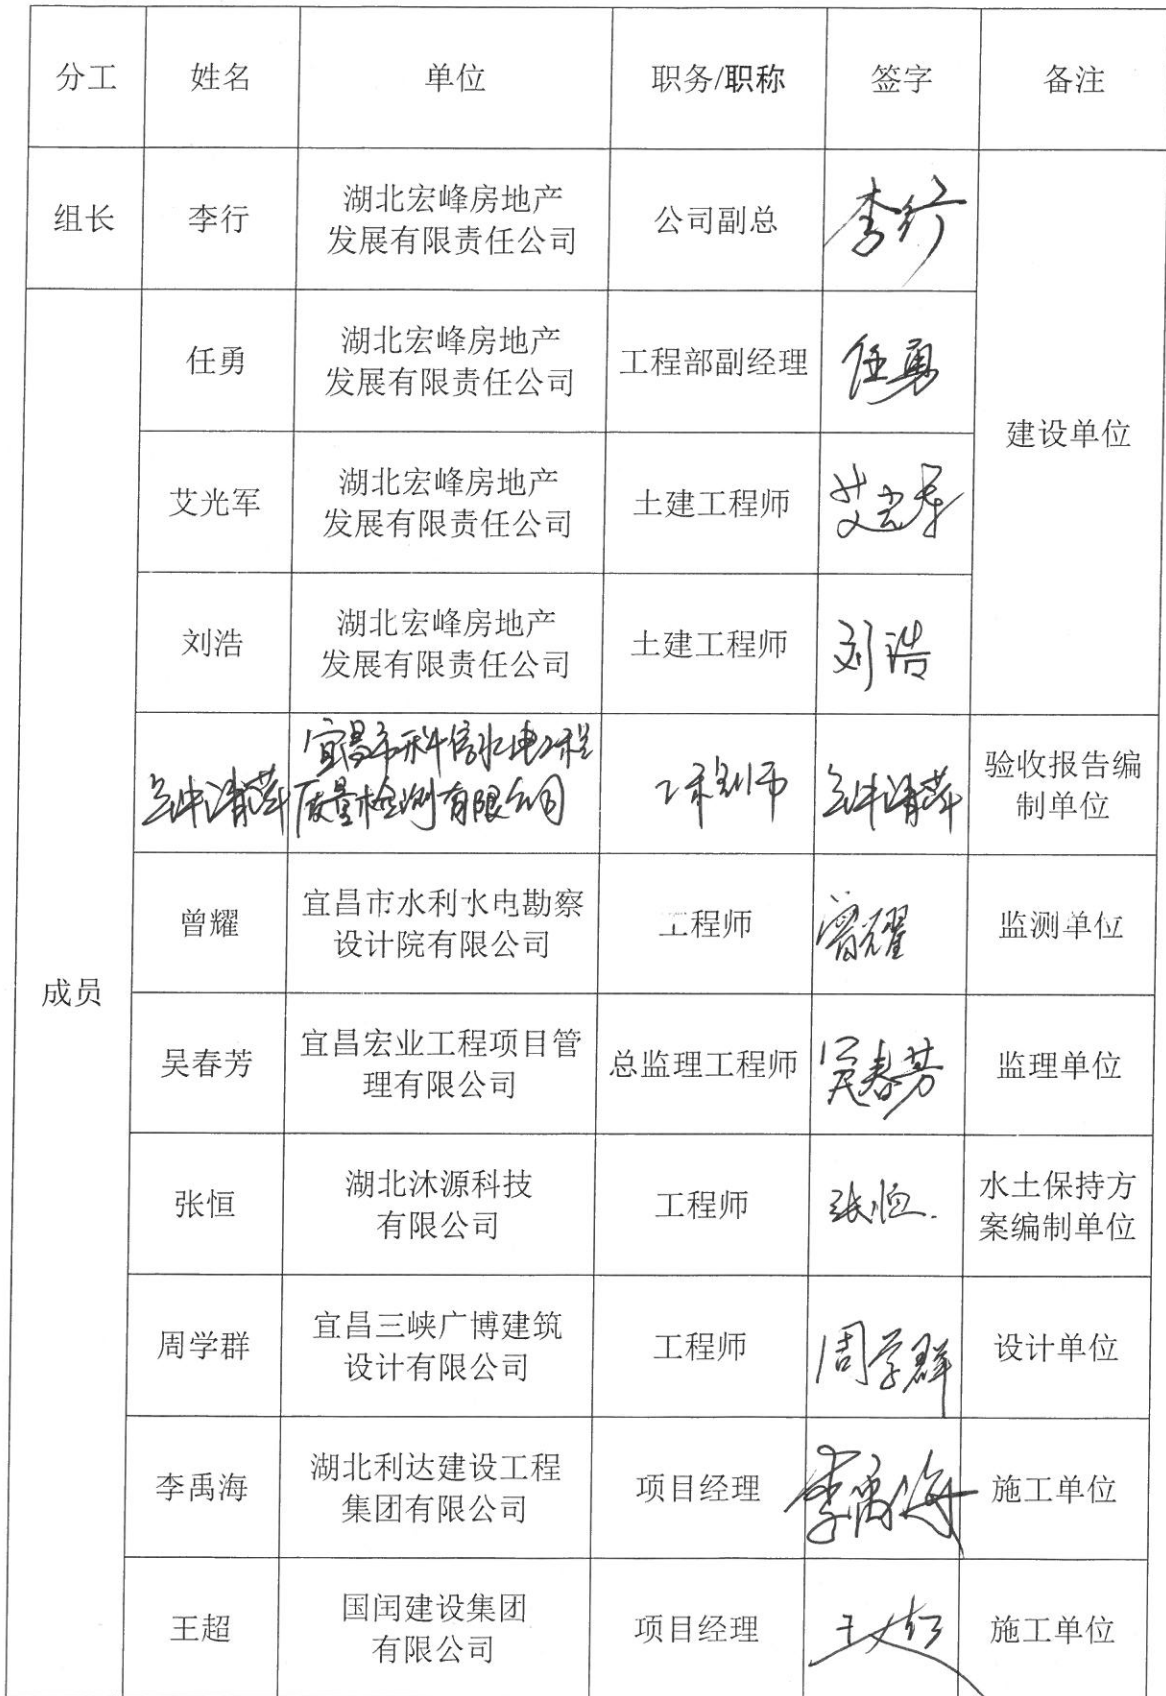 分工 姓名 单位 职务/职称 签字 备注
组长 李行 湖北宏峰房地产
发展有限责任公司 公司副总 李行
任勇 湖北宏峰房地产
发展有限责任公司 工程部副经理 任勇
建设单位
艾光军 湖北宏峰房地产
发展有限责任公司 土建工程师 艾光军
刘浩 湖北宏峰房地产
发展有限责任公司 土建工程师 刘浩
宜昌市禾信水电工程
质量检测有限公司 工程师
验收报告编
制单位
成员
曾耀 宜昌市水利水电勘察
设计院有限公司 工程师 曾耀 监测单位
吴春芳 宜昌宏业工程项目管
理有限公司 总监理工程师 吴春芳 监理单位
张恒 湖北沐源科技
有限公司 工程师 张恒 水土保持方
案编制单位
周学群 宜昌三峡广博建筑
设计有限公司 工程师 周学群 设计单位
李禹海 湖北利达建设工程
集团有限公司 项目经理 李禹海 施工单位
王超 国闰建设集团
有限公司 项目经理 王超 施工单位